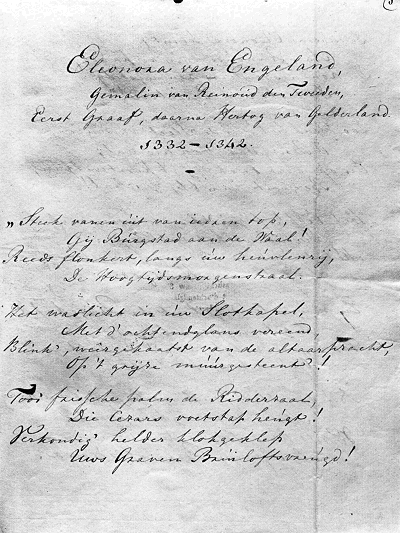 Eleonora van Engeland,
Gemalin van Reinoud den Tweeden,
Eerst Graaf, daarna Hertog van Gelderland.
1332 – 1342.
„Steek vanen uit van iederen top,
Gij Burgstad aan de Waal!
Reeds flonkert, langs uw heuvlenrij,
De Hoogtijdsmorgenstraal.
Het waslicht in uw Slotkapel,
Met d'ochtendglans vereend,
Blink', weêrgekaatst van de altaarpracht,
Op 't grijze muurgesteent'!
Tooi' frissche palm de Ridderzaal,
Die Cezars voetstap heugt!
Verkondig' helder klokgeklop
Uws Graven Bruiloftsvreugd!